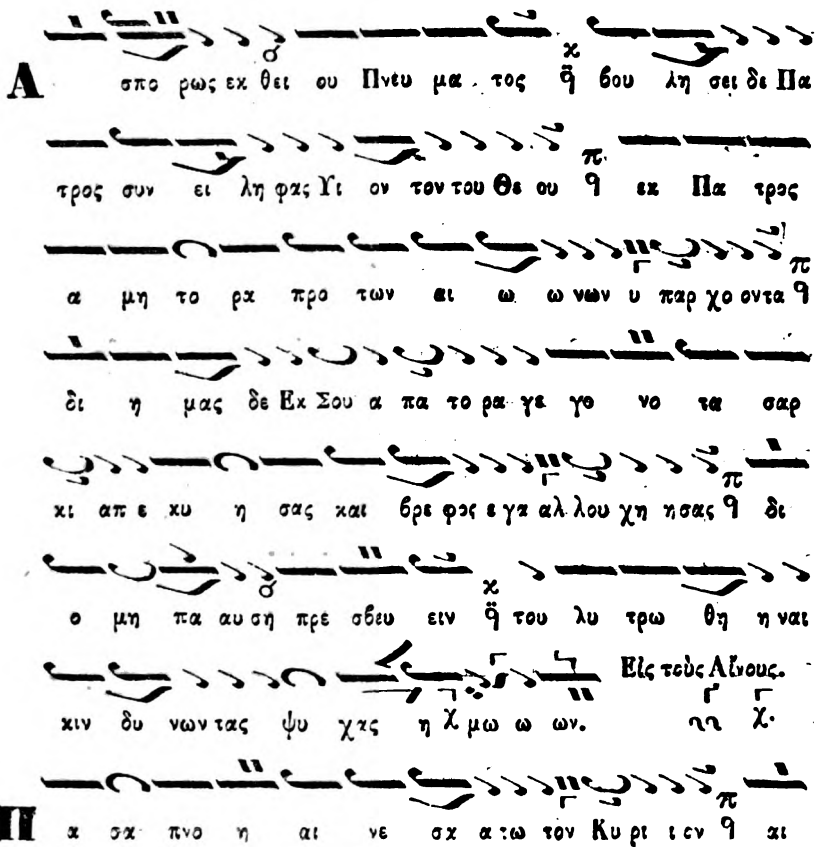 Α σπο ρως εκ θει ου Πνευ μα τος βου λη σει δε Πα
τρος συν ει λη φας Υι ον τον του Θε ου εκ Πα τρος
α μη το ρα προ των αι ω ω νων υ παρ χο οντα
δι η μας δε Εκ Σου α πα το ρα γε γο νο τα σαρ
κι απ ε κυ η σας και βρε φος ε γα αλ λου χη η σας δι
ο μη πα αυ ση πρε σβευ ειν του λυ τρω θη η ναι
κιν δυ νων τας ψυ χας η μω ω ων.
Εἰς τοὺς Αἴνους.
Π α σα πνο η αι νε σα α τω τον Κυ ρι ι ον αι